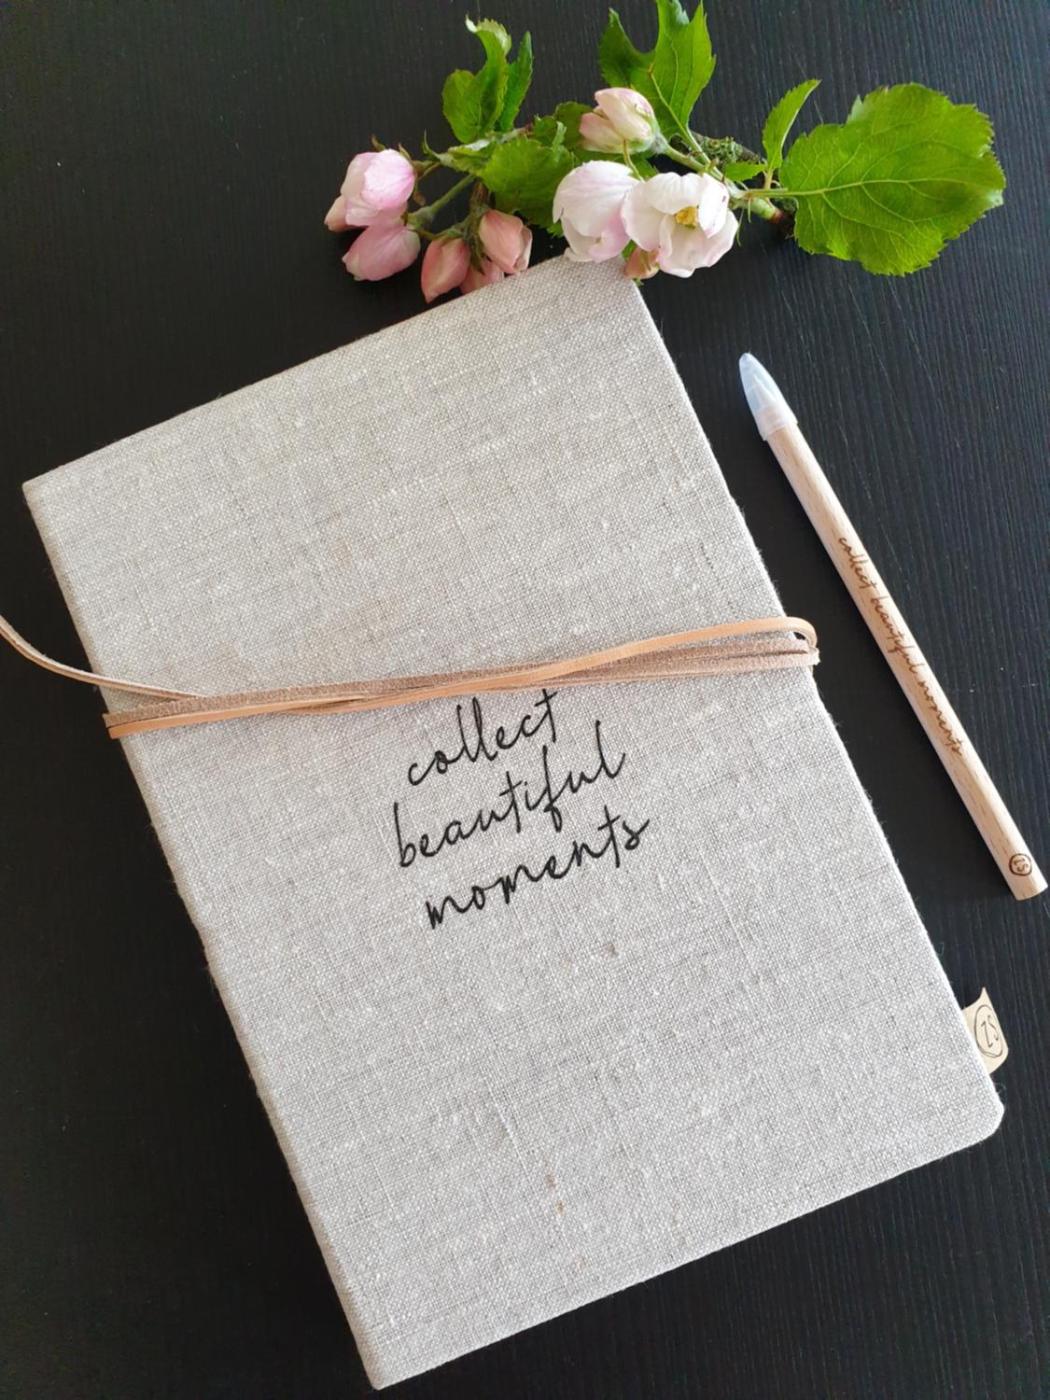 collect
beautiful
moments
collect beautiful moments